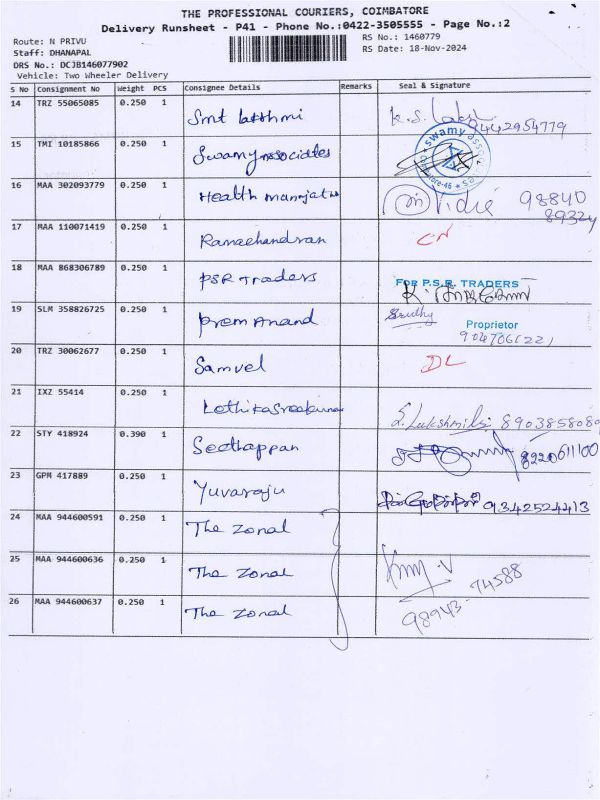 THE PROFESSIONAL COURIERS, COIMBATORE
Delivery Runsheet - P41 - Phone No.:0422-3505555 - Page No.:2
Route: N PRIVU
RS No.: 1460779
Staff: DHANAPAL
RS Date: 18-Nov-2024
DRS No.: DCJB146077902
Vehicle: Two Wheeler Delivery
S No Consignment No Weight PCS Consignee Details Remarks Seal & Signature
14 TRZ 55065085 0.250 1 Smt lakshmi K.S.
9442954779
15 TMI 10185866 0.250 1 Swamy associates swamy associates
16 MAA 302093779 0.250 1 Health Vidie 98840
89324
17 MAA 110071419 0.250 1 Ramachandran CN
18 MAA 868306789 0.250 1 PSR Traders FOR P.S.R. TRADERS
Proprietor
19 SLM 358826725 0.250 1 Prem Anand
20 TRZ 30062677 0.250 1 Samvel DL
21 IXZ 55414 0.250 1 S. Lakshmi 8903858089
22 STY 418924 0.390 1 Seethappan 8220611100
23 GPM 417889 0.250 1 Yuvaraju 9342524413
24 MAA 944600591 0.250 1 The Zonal
25 MAA 944600636 0.250 1 The Zonal
26 MAA 944600637 0.250 1 The Zonal 98943-74588